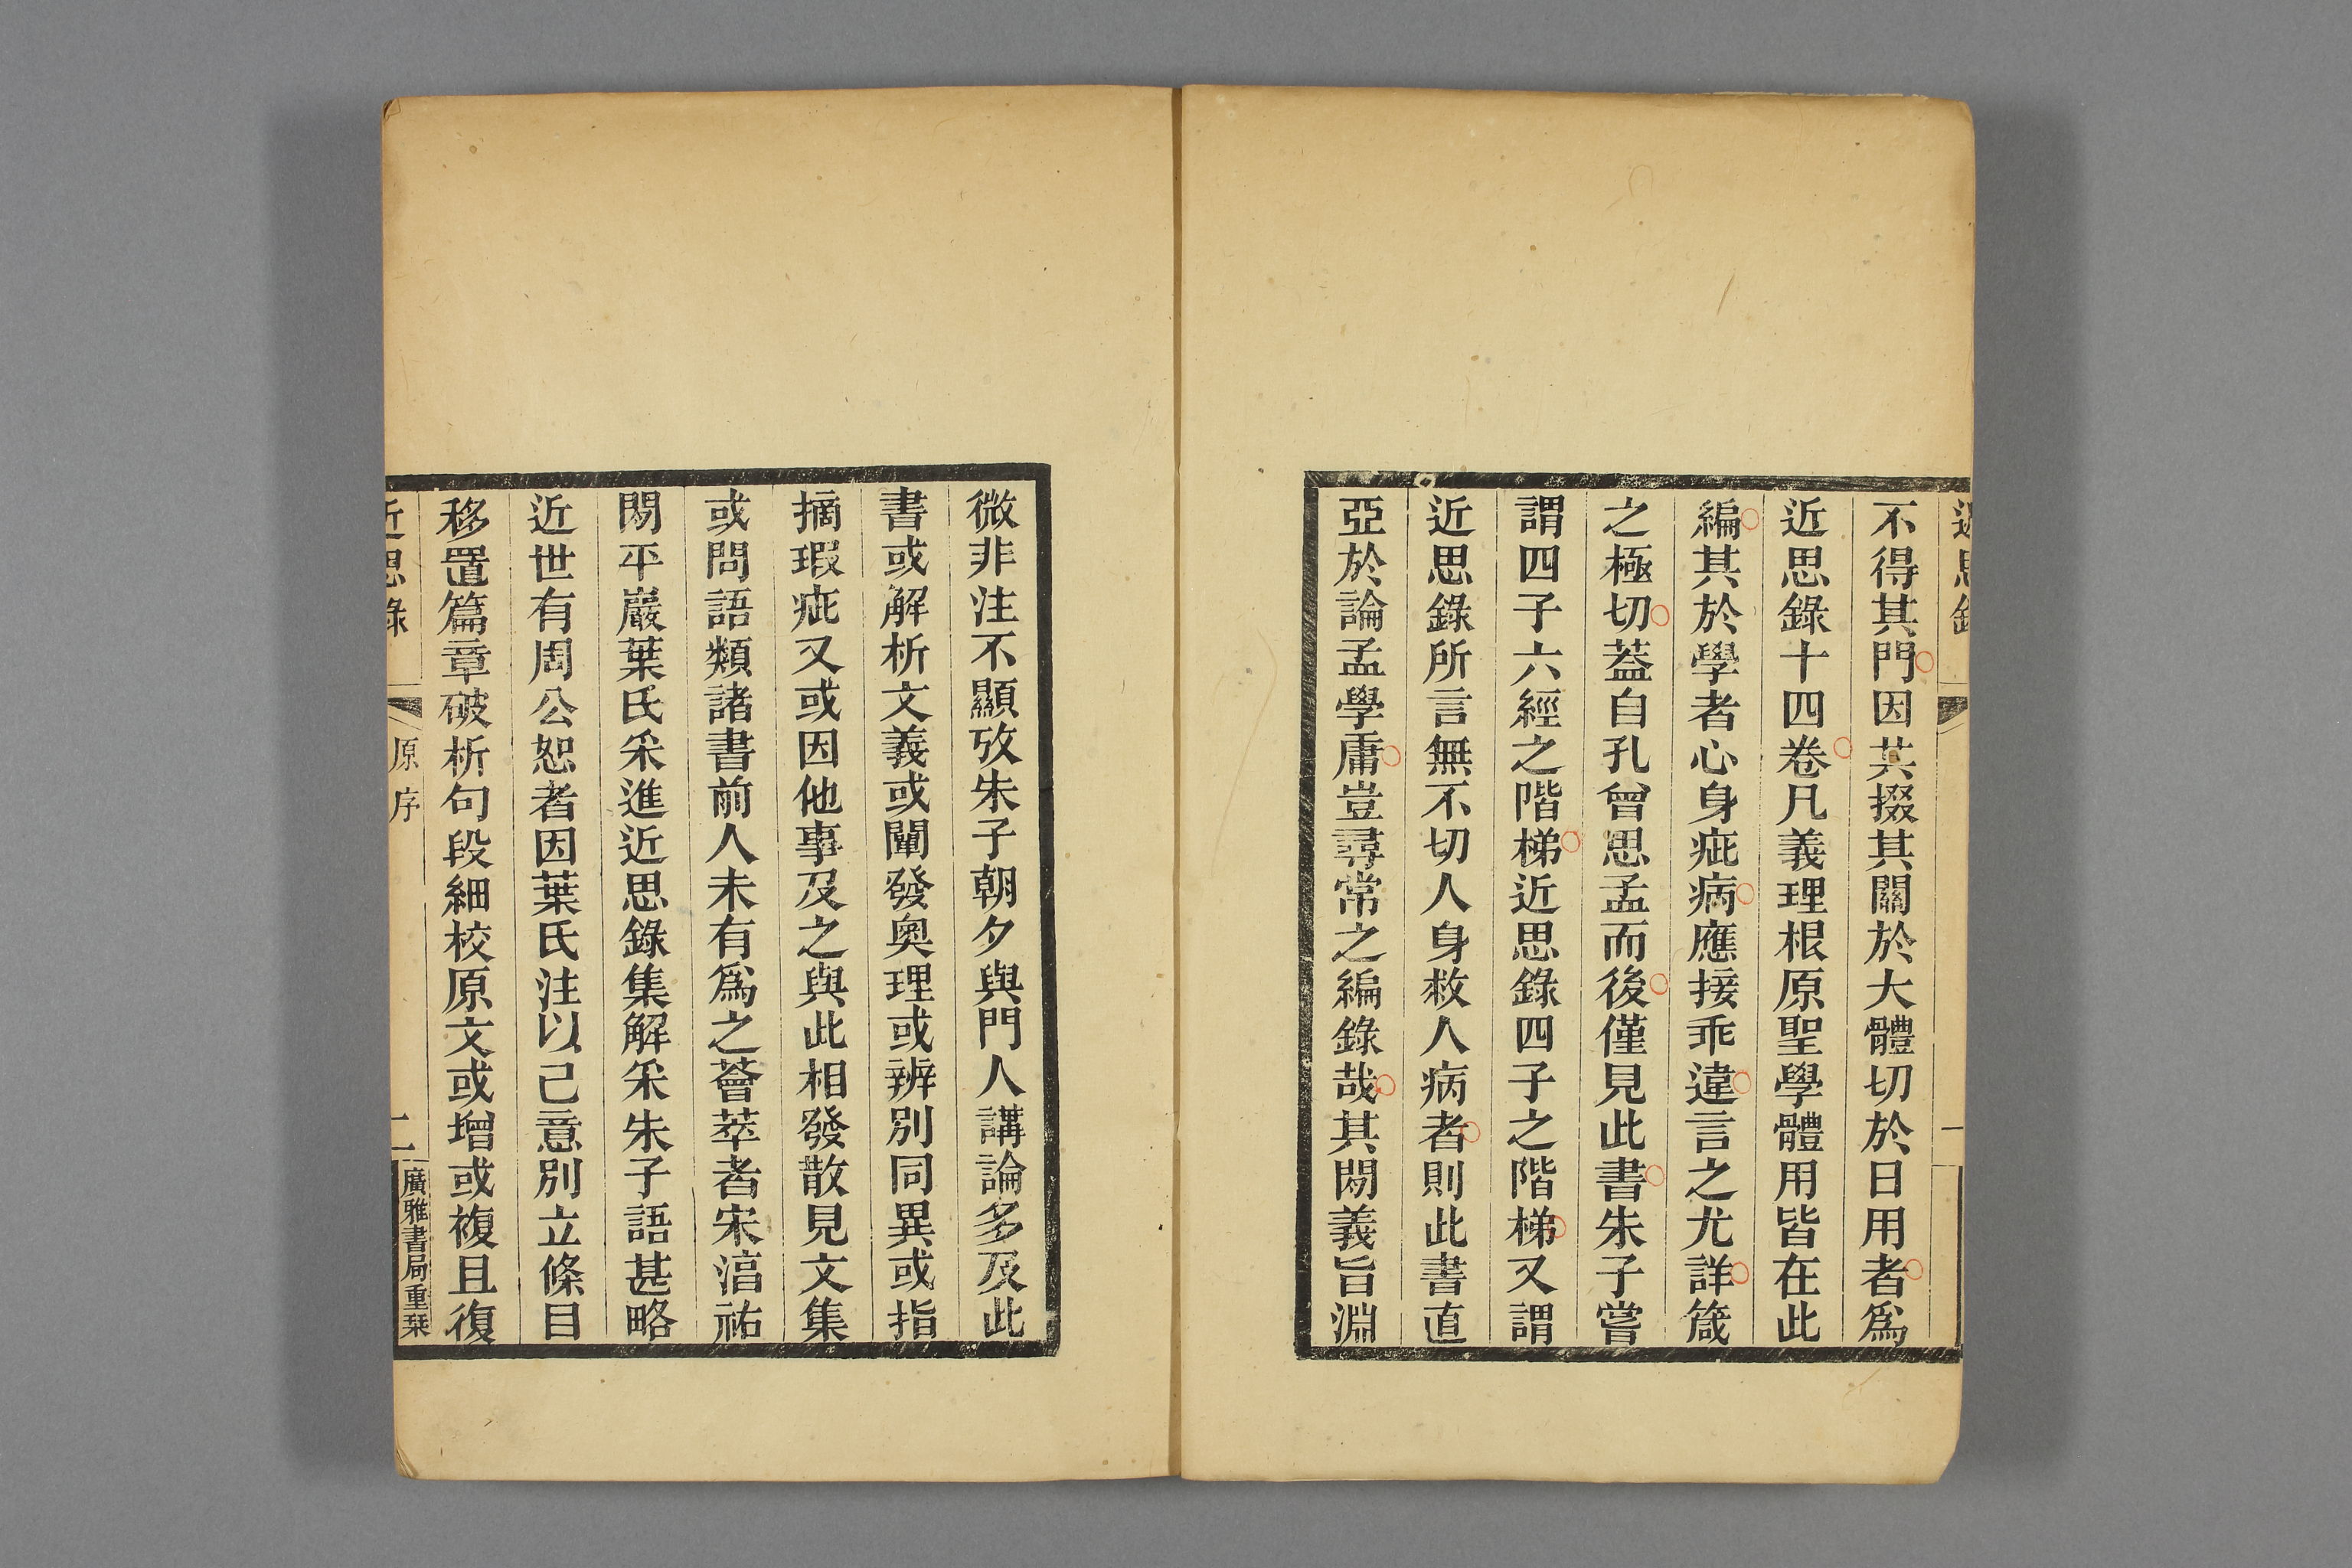 近思錄
一
不得其門因共掇其關於大體切於日用者爲
近思錄十四卷凡義理根原聖學體用皆在此
編其於學者心身疵病應接乖違言之尤詳箴
之極切蓋自孔曾思孟而後僅見此書朱子嘗
謂四子六經之階梯近思錄四子之階梯又謂
近思錄所言無不切人身救人病者則此書直
亞於論孟學庸豈尋常之編錄哉其閎義旨淵
微非注不顯攷朱子朝夕與門人講論多及此
書或解析文義或闡發奧理或辨別同異或指
摘瑕疵又或因他事及之與此相發散見文集
或問語類諸書前人未有爲之薈萃者宋淳祐
閒平巖葉氏采進近思錄集解采朱子語甚略
近世有周公恕者因葉氏注以己意別立條目
移置篇章破析句段細校原文或增或複且復
近思錄
原序
二
廣雅書局重栞